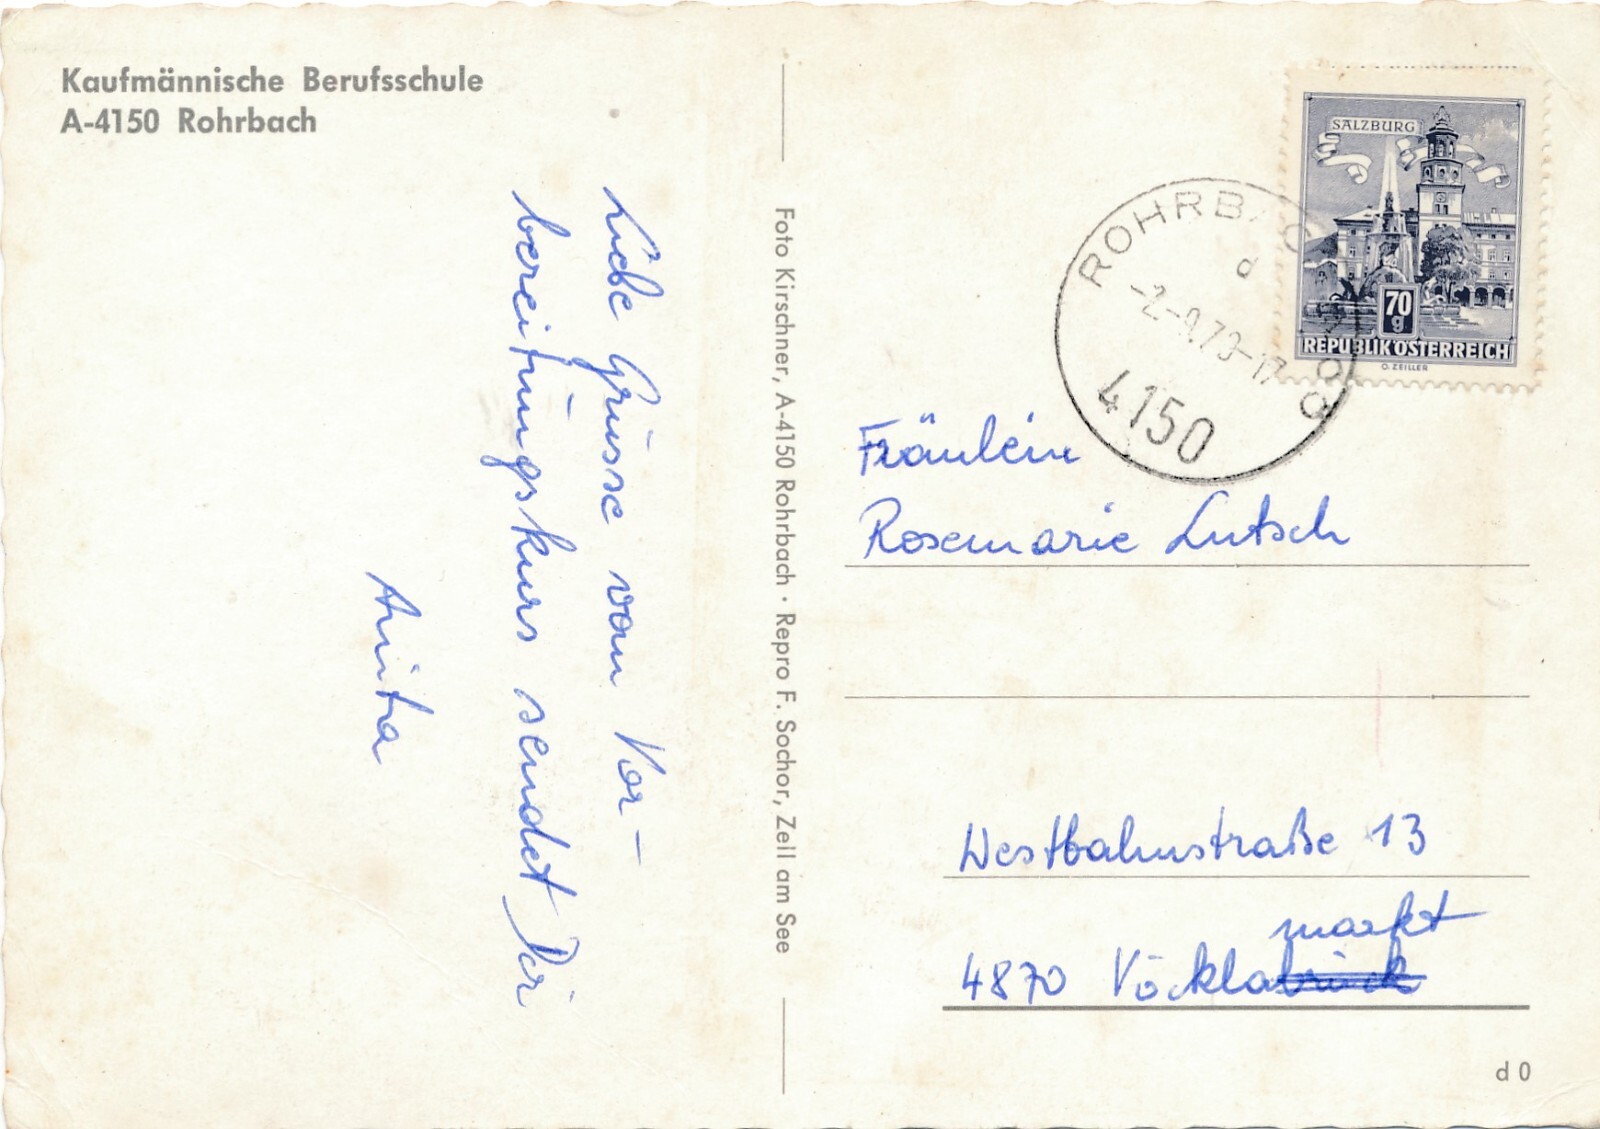 Kaufmännische Berufsschule
A-4150 Rohrbach
Liebe Grüsse vom Vor-
bereitungskurs sendet Dir
Anita
Foto Kirschner, A-4150 Rohrbach · Repro F. Sochor, Zell am See
SALZBURG
70
g
REPUBLIK ÖSTERREICH
O. ZEILLER
ROHRBACH
d
4150
Fräulein
Rosemarie Lutsch
Westbahnstraße 13
markt
4870 Vöcklabruck
d 0